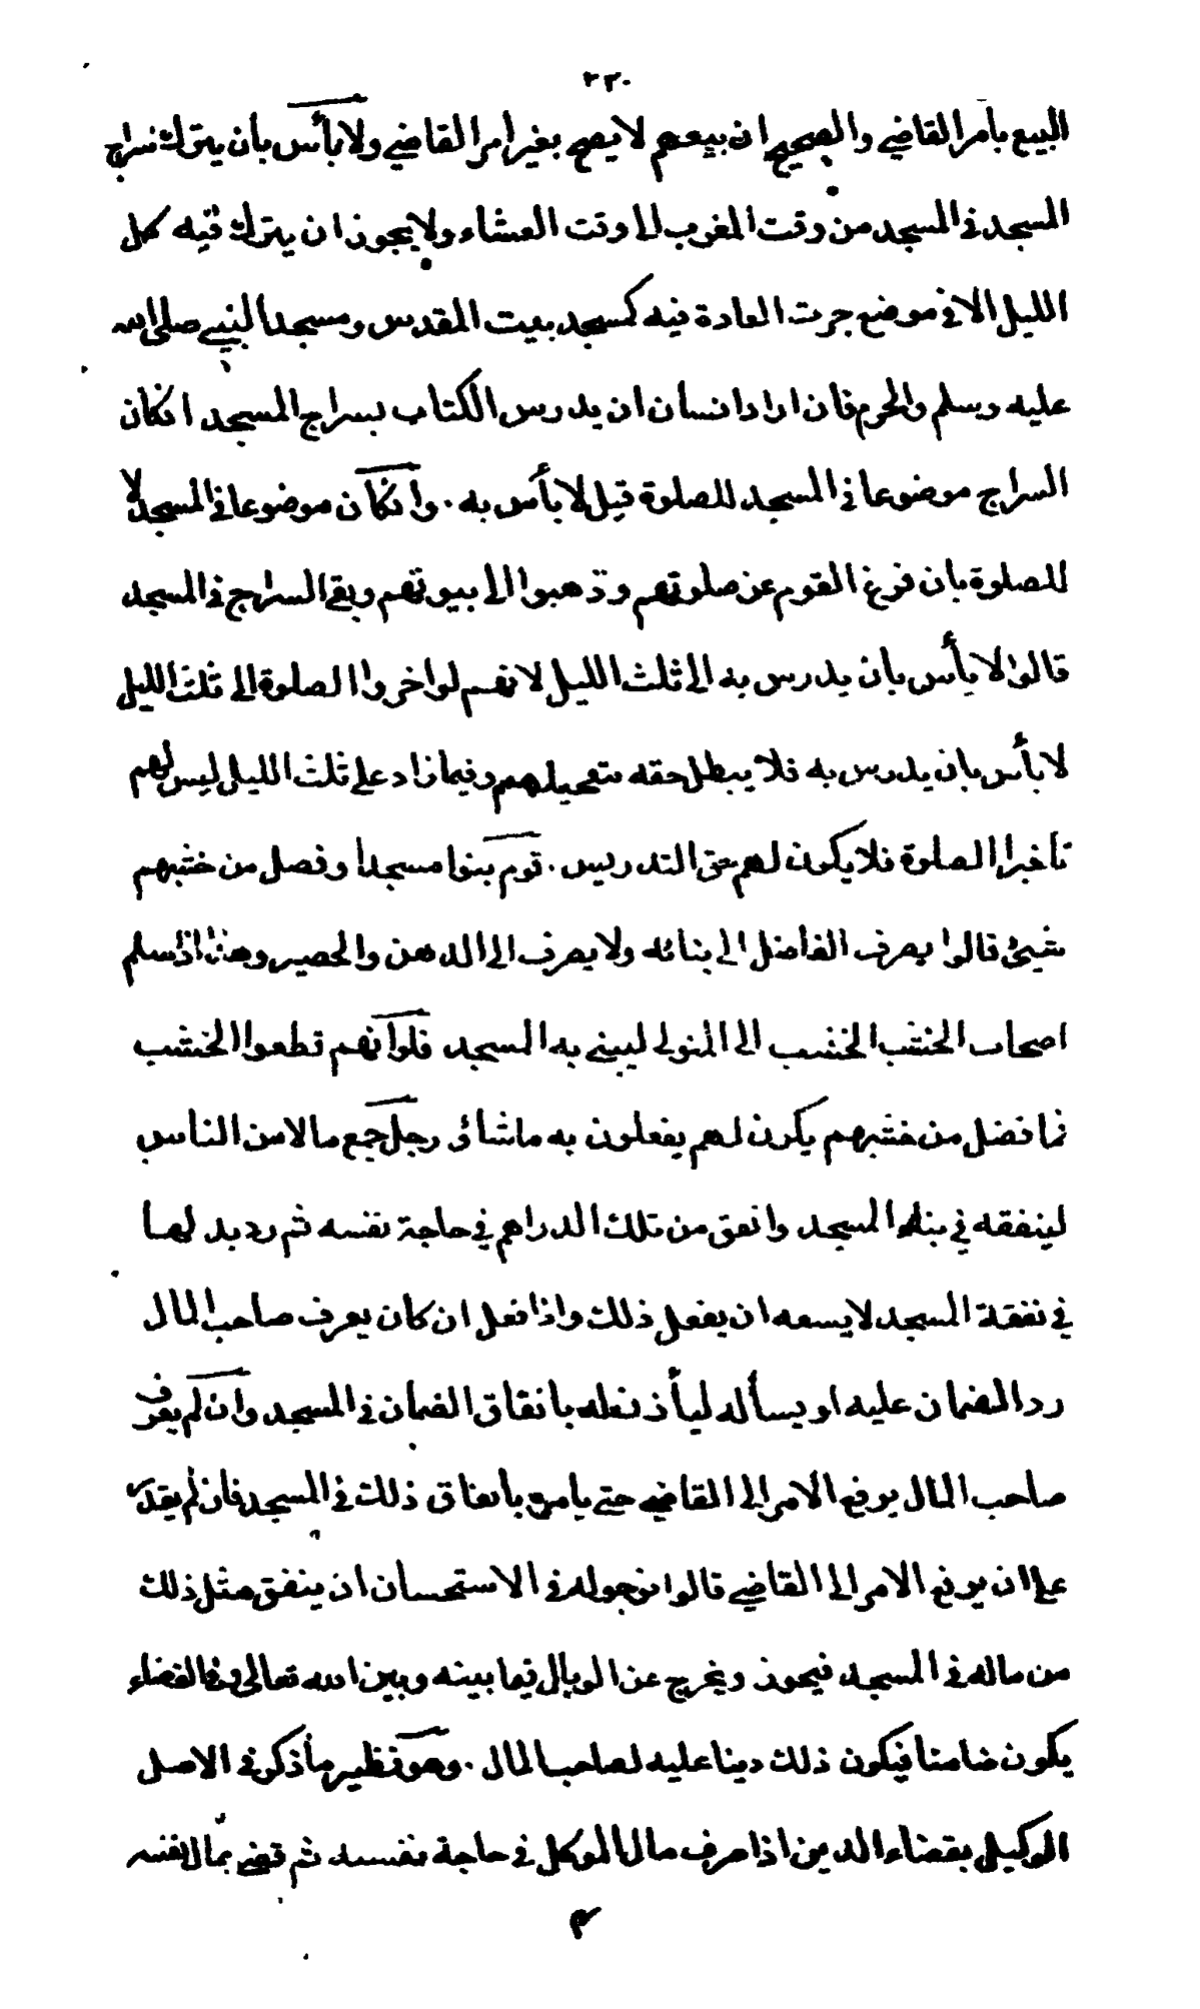 ٢٢٠
البيع بامر القاضي والصحيح ان بيعهم لا يصح بغير امر القاضي ولا بأس بان يترك سراج
المسجد في المسجد من وقت المغرب الى وقت العشاء ولا يجوز ان يترك فيه كل
الليل الا في موضع جرت العادة فيه كمسجد بيت المقدس ومسجد النبي صلى الله
عليه وسلم والحرم فان اراد انسان ان يدرس الكتاب بسراج المسجد انكان
السراج موضوعا في المسجد للصلوة قيل لا بأس به ٠ وانكان موضوعا في المسجد لا
للصلوة بان فرغ القوم عن صلوتهم وذهبوا الى بيوتهم وبقي السراج في المسجد
قالوا لا بأس بان يدرس به الى ثلث الليل لانهم لو اخروا الصلوة الى ثلث الليل
لا بأس بان يدرس به فلا يبطل حقه بتعجيلهم وفيما زاد على ثلث الليل ليس لهم
تأخير الصلوة فلا يكون لهم حق التدريس ٠ قوم بنوا مسجدا وفضل من خشبهم
شيئ قالوا يصرف الفاضل الى بنائه ولا يصرف الى الدهن والحصير وهذا اذا سلم
اصحاب الخشب الخشب الى المتولى ليبني به المسجد فلو انهم قطعوا الخشب
فما فضل من خشبهم يكون لهم يفعلون به ما شاؤ رجل جمع مالا من الناس
لينفقه في بناء المسجد وانفق من تلك الدراهم في حاجة نفسه ثم رد بدلها
في نفقة المسجد لا يسعه ان يفعل ذلك واذا فعل ان كان يعرف صاحب المال
رد الضمان عليه او يسأله ليأذن له بانفاق الضمان في المسجد وان لم يعرف
صاحب المال يرفع الامر الى القاضي حتى يامره بانفاق ذلك في المسجد فان لم يقدر
على ان يرفع الامر الى القاضي قالوا نرجو له في الاستحسان ان ينفق مثل ذلك
من ماله في المسجد فيجوز ويخرج عن الوبال فيما بينه وبين الله تعالى وفي القضاء
يكون ضامنا فيكون ذلك دينا عليه لصاحب المال ٠ وهو نظير ما ذكر في الاصل
الوكيل بقضاء الدين اذا صرف مال الموكل في حاجة نفسه ثم قضى بمال نفسه